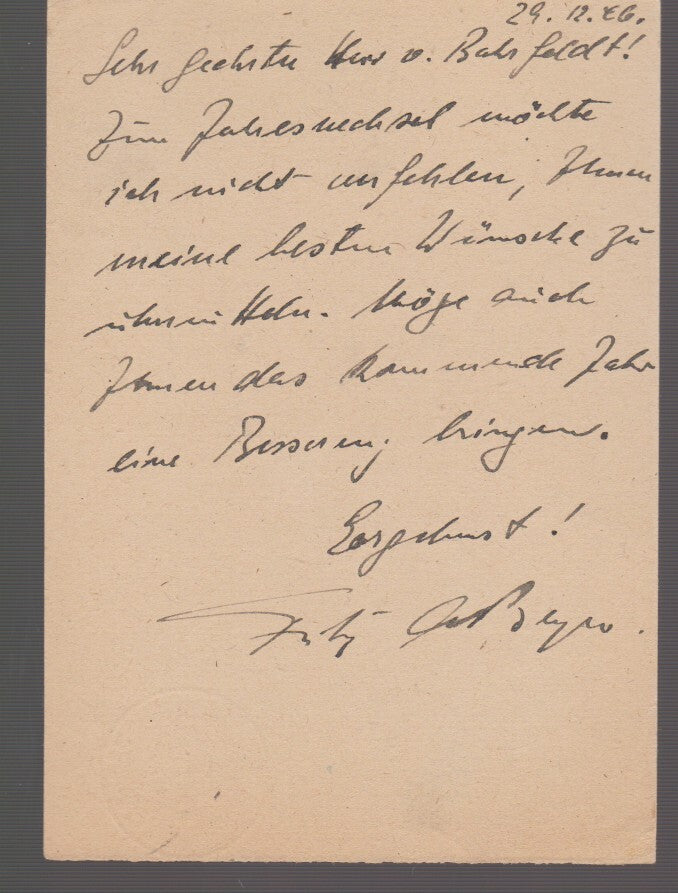 29. 12. 46.
Sehr geehrter Herr v. Bahrfeldt!
Zum Jahreswechsel möchte
ich nicht verfehlen, Ihnen
meine besten Wünsche zu
übermitteln. Möge auch
Ihnen das kommende Jahr
eine Besserung bringen.
Ergebenst!
Fritz